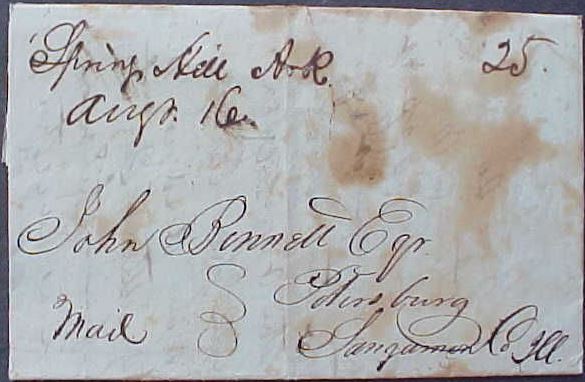 Spring Hill Ark. 25.
Augt. 16.
John Bennett Eqr.
Petersburg
Mail Sangamon Co Ill.